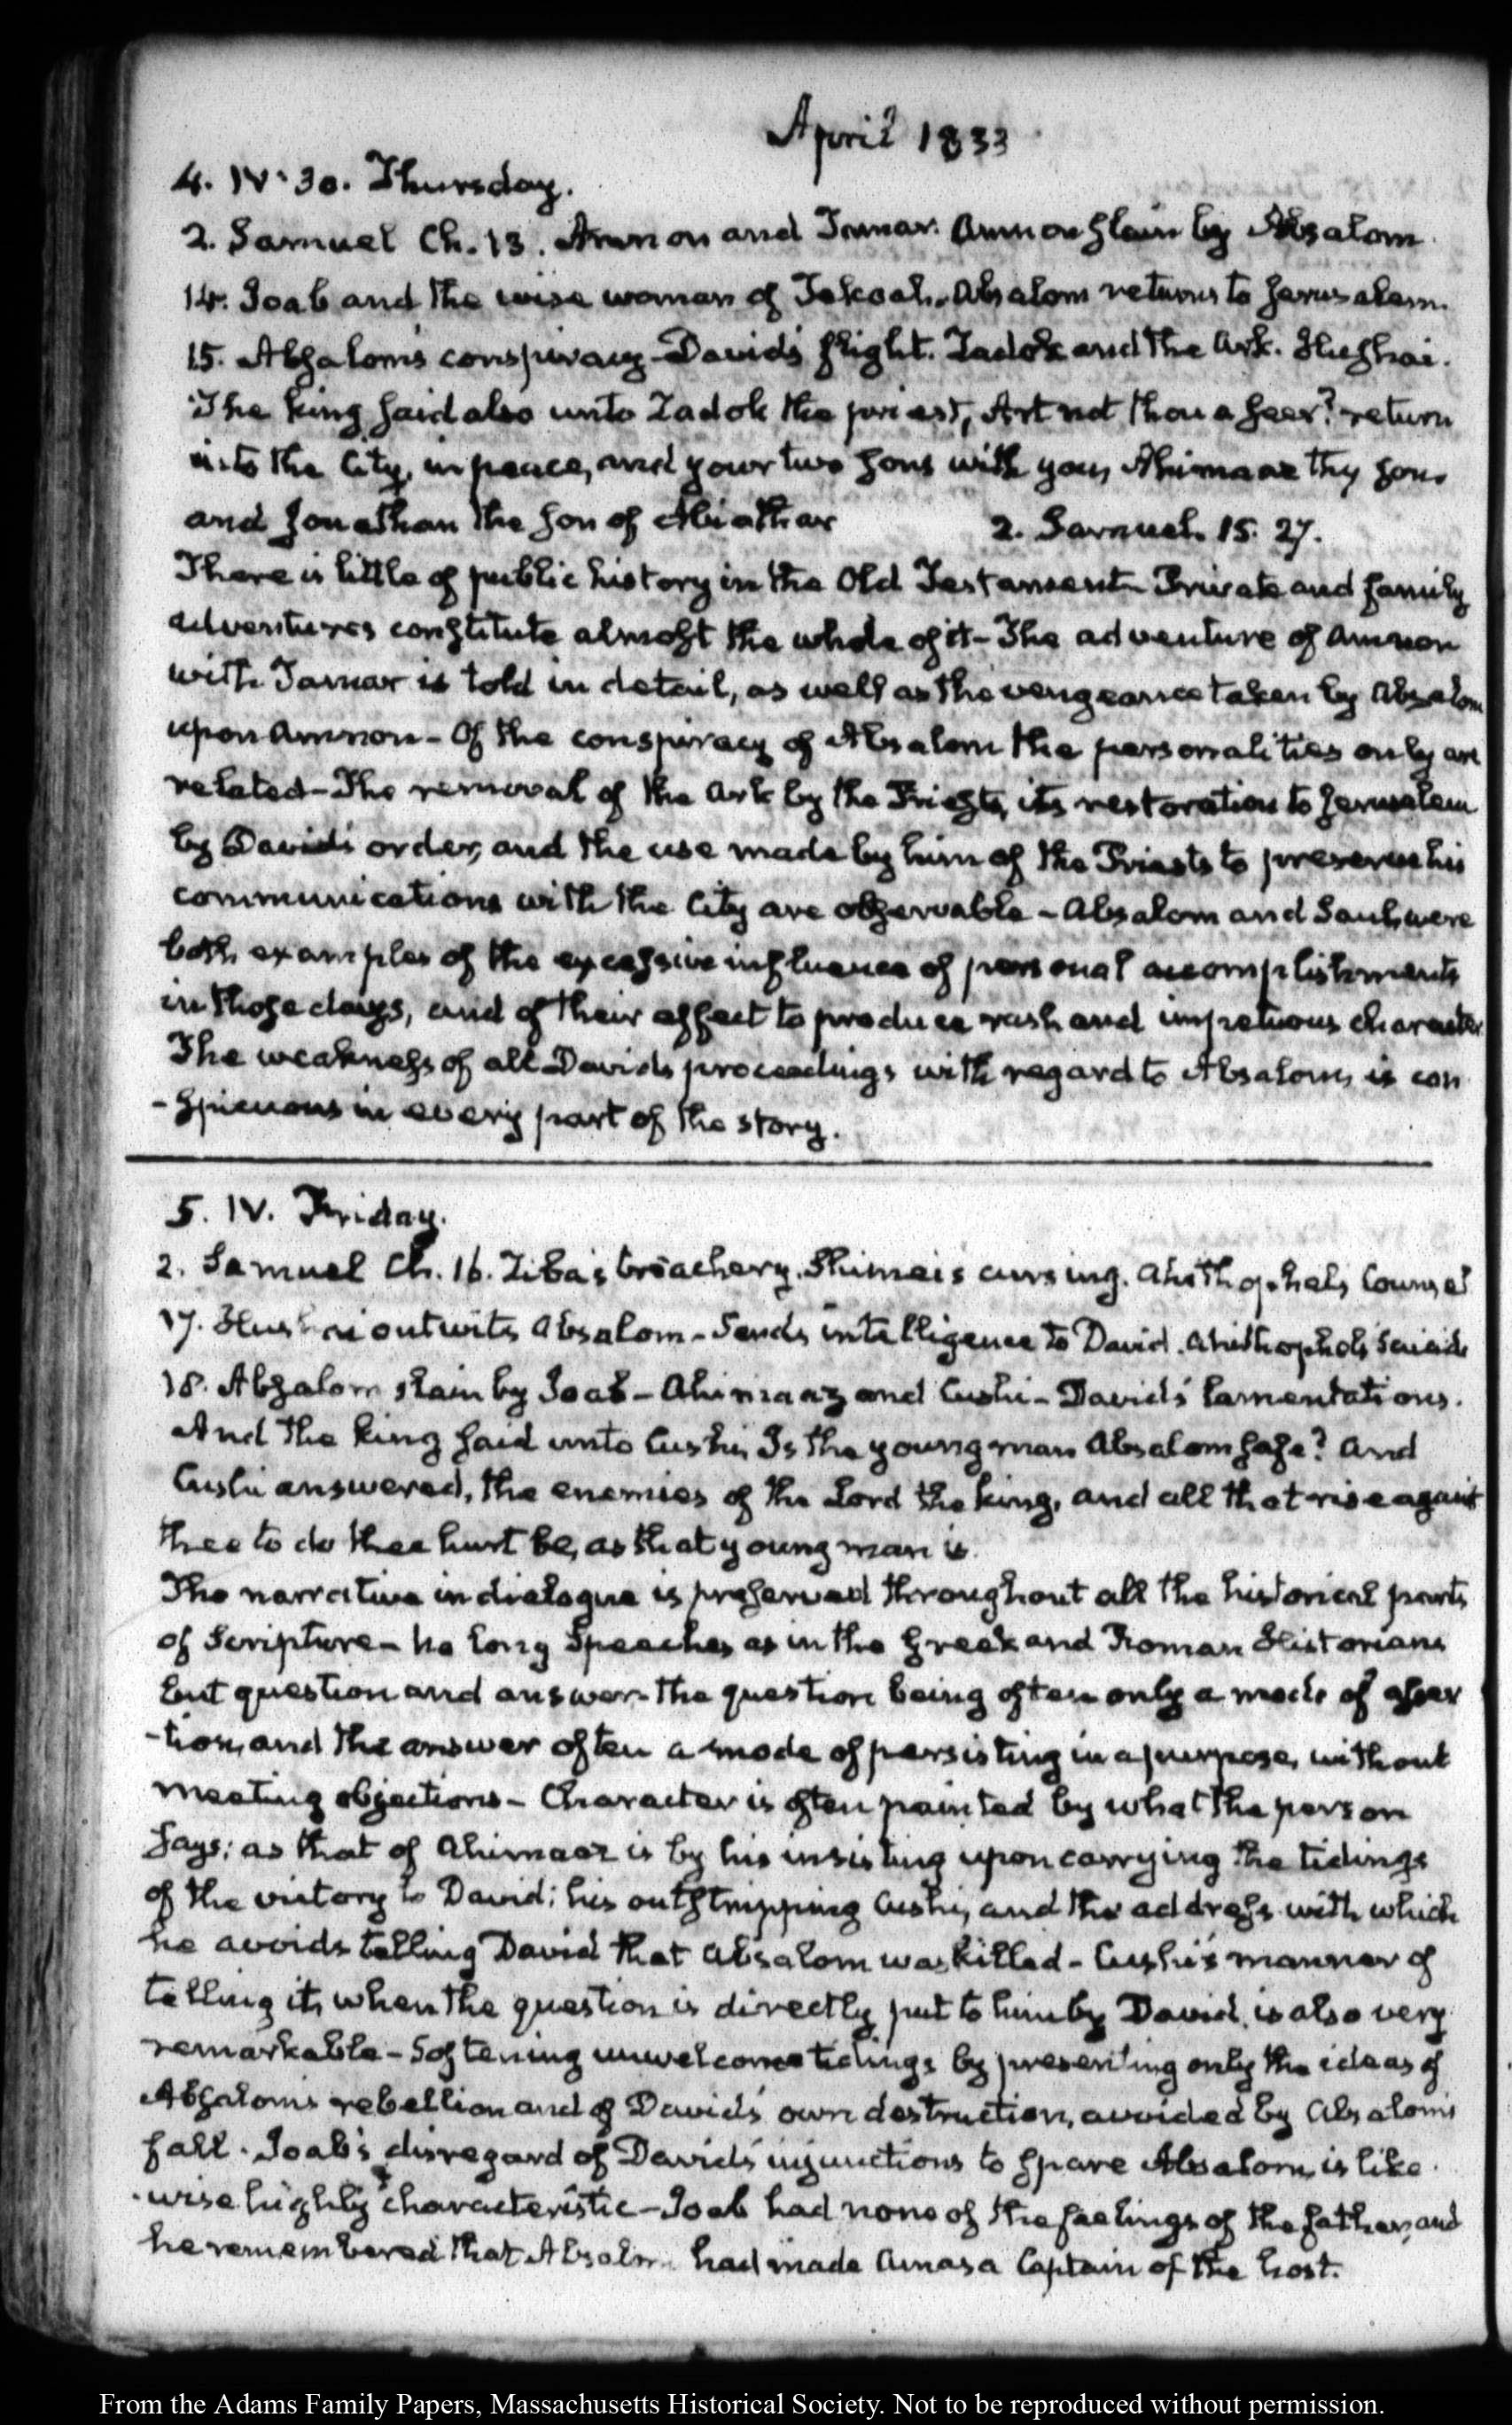 April 1833
4. IV:30. Thursday.
2. Samuel Ch. 13. Amnon and Tamar. Amnon slain by Absalom.
14. Joab and the wise woman of Tekoah. Absalom returns to Jerusalem.
15. Absalom's conspiracy - David's flight. Zadok and the Ark. Hushai.
The king said also unto Zadok the priest, Art not thou a seer? return
into the City, in peace, and your two sons with you, Ahimaaz thy son,
and Jonathan the son of Abiathar 2. Samuel. 15. 27.
There is little of public history in the Old Testament - Private and family
adventures constitute almost the whole of it - The adventure of Amnon
with Tamar is told in detail, as well as the vengeance taken by Absalom
upon Amnon - Of the conspiracy of Absalom the personalities only are
related - The removal of the Ark by the Priests, its restoration to Jerusalem
by David's order, and the use made by him of the Priests to preserve his
communications with the City are observable - Absalom and Saul, were
both examples of the excessive influence of personal accomplishments
in those days, and of their effect to produce rash and impetuous character
The weakness of all David's proceedings with regard to Absalom, is con
-spicuous in every part of the story.
5. IV. Friday.
2. Samuel Ch. 16. Ziba's treachery. Shimei's cursing. Ahithophel's Counsel
17. Hushai outwits Absalom - Sends intelligence to David. Ahithophel's Suicide
18. Absalom slain by Joab - Ahimaaz and Cushi - David's lamentations.
And the king said unto Cushi, Is the young man Absalom safe? and
Cushi answered, the enemies of the Lord the king, and all that rise against
thee to do thee hurt be, as that young man is.
The narrative in dialogue is preserved throughout all the historical parts
of Scripture - no long Speeches as in the Greek and Roman Historians
but question and answer - the question being often only a mode of asser
-tion, and the answer often a mode of persisting in a purpose, without
meeting objections - Character is often painted by what the person
says; as that of Ahimaaz is by his insisting upon carrying the tidings
of the victory to David; his outstripping Cushi, and the address with which
he avoids telling David that Absalom was killed - Cushi's manner of
telling it, when the question is directly put to him by David, is also very
remarkable - Softening unwelcome tidings by presenting only the ideas of
Absalom's rebellion and of David's own destruction, avoided by Absalom's
fall. Joab's disregard of David's injunctions to spare Absalom, is like
-wise highly characteristic - Joab had none of the feelings of the father, and
he remembered that Absalom had made Amasa Captain of the host.
From the Adams Family Papers, Massachusetts Historical Society. Not to be reproduced without permission.